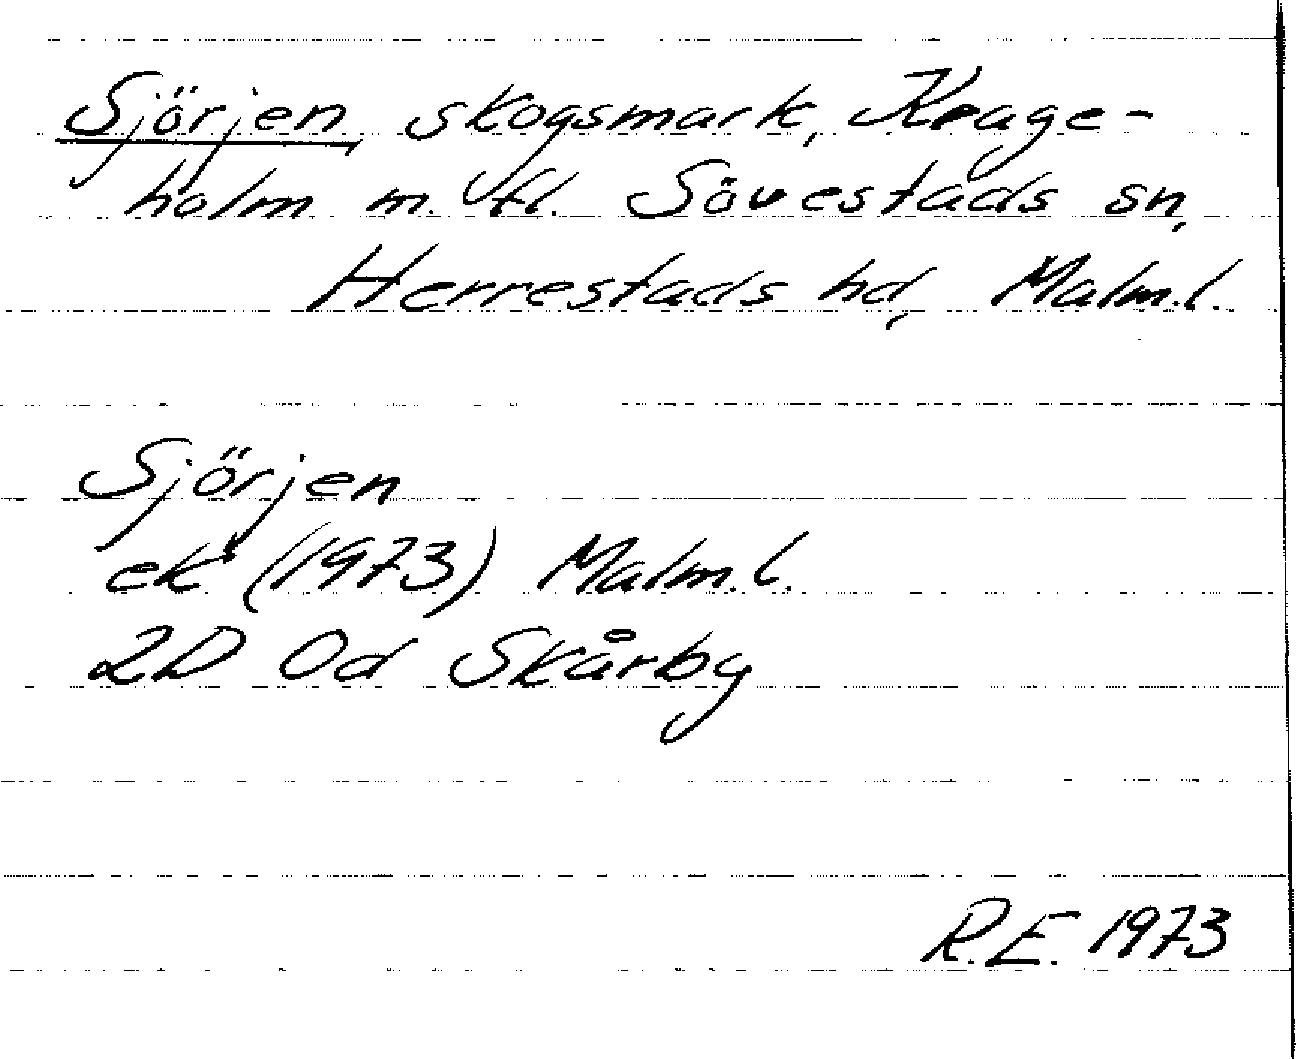 Sjörjen, skogsmark, Krage-
holm m. fl. Sövestads sn,
Herrestads hd, Malm.l.
Sjörjen
ek (1973) Malm.l.
2D 0d Skårby
R.E. 1973